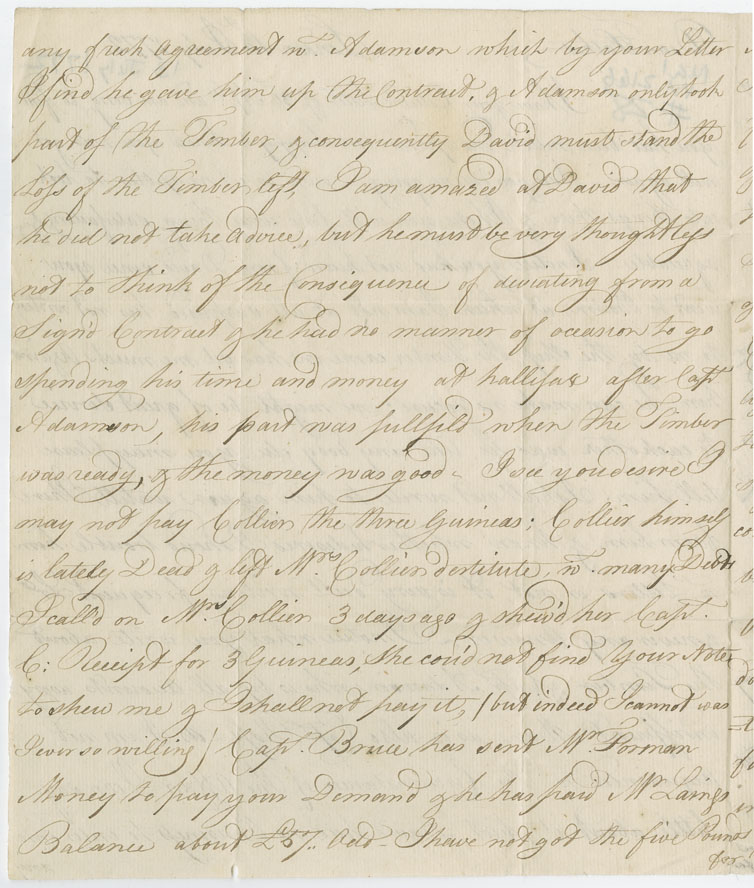 any fresh agreement wt. Adamson which by your Letter
I find he gave him up the Contract, & Adamson only took
part of the Timber, & consequently David must stand the
Loss of the Timber left, I am amazed at David that
he did not take advice, but he must be very thoughtless
not to think of the Consequence of deviating from a
Sign'd Contract & he had no manner of occasion to go
spending his time and money at hallifax after Capt
Adamson, his part was fullfil'd when the Timber
was ready, & the money was good - I see you desire I
may not pay Collier the three Guineas; Collier himself
is lately Dead & left Mrs Collier destitute, wt. many Debts
I call'd on Mrs Collier 3 days ago & shew'd her Capt.
C: Receipt for 3 Guineas, she cou'd not find your Note
to shew me & I shall not pay it, / but indeed I cannot was
I ever so willing / Capt. Bruce has sent Mr Forman
Money to pay your Demand & he has paid Mr Laings
Balance about £57.. Odd - I have not got the five Pounds
for